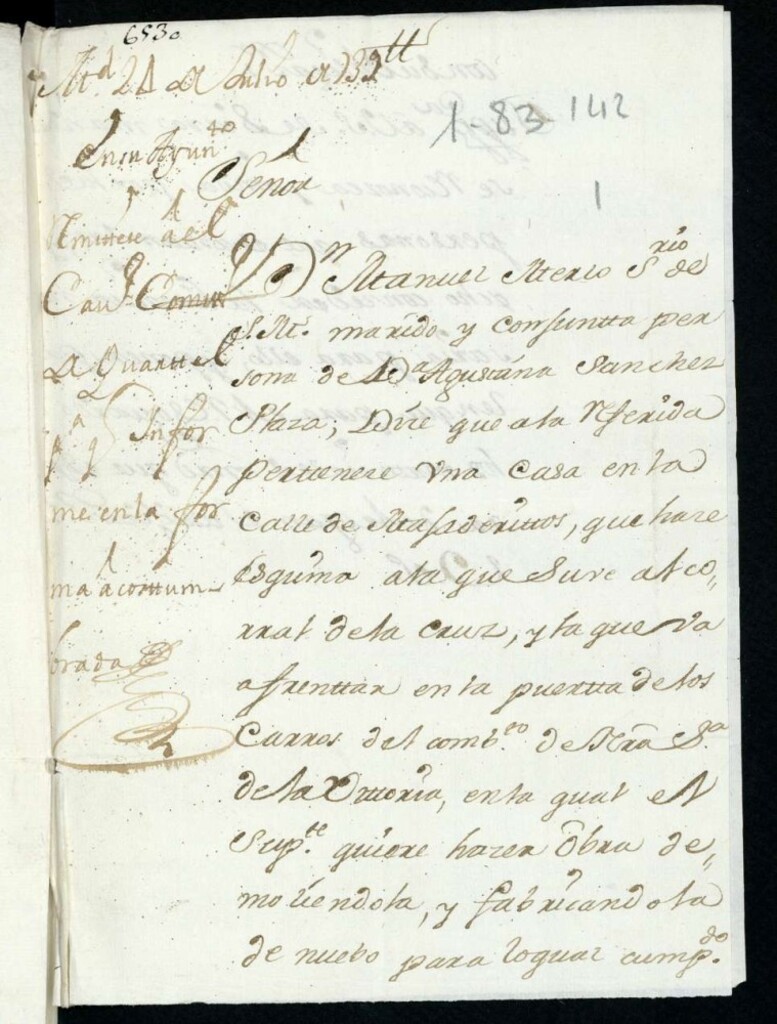 653.
Md 24 de Julio de 1732
En su Ayunto
Remitese a el
Cavo Comiss
de Quarttel
pa q Infor
me en la for
ma acosttum-
brada
1-83-142
1
Señor
Dn Manuel Merlo Srio de
S.M. marido y conjuntta per
sona de Da Agustina Sanchez
Plaza, Dize que a la Referida
perttenese Vna Casa en la
Calle de Majaderittos, que haze
esquina a la que Suve al co,,
rral de la Cruz, y la que va
afrenttar en la puertta de los
Carros del combto de Nra Sa
de la Vittoria, en la qual el
Supte quiere hazer Obra de,,
moliendola, y fabricandola
de nuebo para lo qual cumpdo